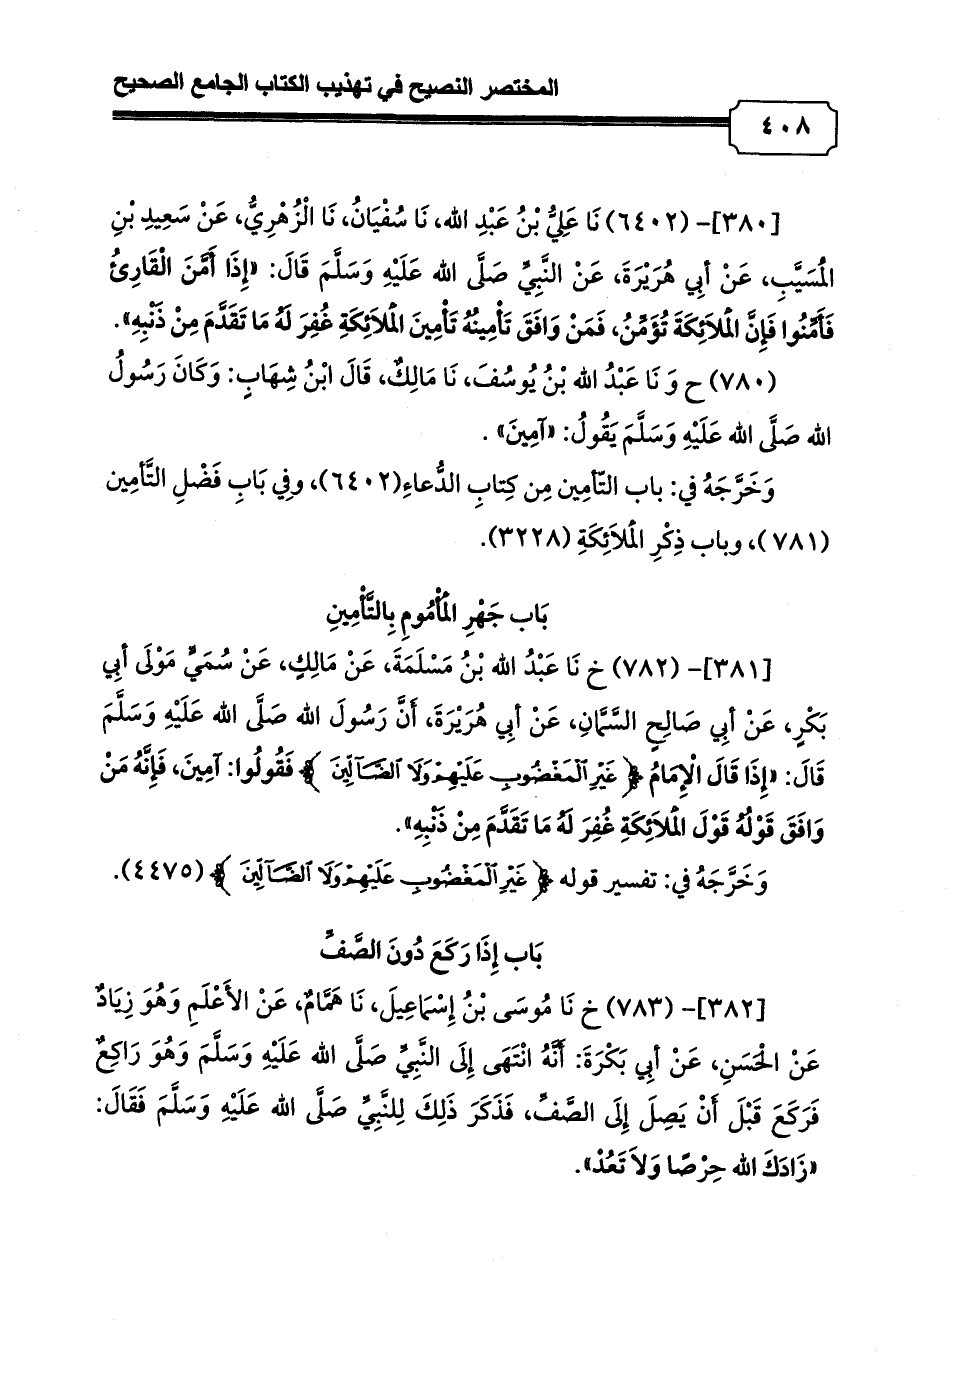 المختصر النصيح في تهذيب الكتاب الجامع الصحيح
٤٠٨
[٣٨٠]- (٦٤٠٢) نَا عَلِيُّ بْنُ عَبْدِ الله، نَا سُفْيَانُ، نَا الْزُهْرِيُّ، عَنْ سَعِيدِ بْنِ
الْمُسَيَّبِ، عَنْ أبِي هُرَيْرَةَ، عَنْ النَّبِيِّ صَلَّى الله عَلَيْهِ وَسَلَّمَ قَالَ: «إِذَا أَمَّنَ الْقَارِئُ
فَأَمِّنُوا فَإِنَّ الْمَلاَئِكَةَ تُؤَمِّنُ، فَمَنْ وَافَقَ تَأْمِينُهُ تَأْمِينَ الْمَلاَئِكَةِ غُفِرَ لَهُ مَا تَقَدَّمَ مِنْ ذَنْبِهِ».
(٧٨٠) ح وَ نَا عَبْدُ الله بْنُ يُوسُفَ، نَا مَالِكٌ، قَالَ ابْنُ شِهَابٍ: وَكَانَ رَسُولُ
الله صَلَّى الله عَلَيْهِ وَسَلَّمَ يَقُولُ: «آمِينَ» .
وَخَرَّجَهُ في: باب التّأمين مِن كِتابِ الدُّعاءِ(٦٤٠٢)، وفِي بَابِ فَضْلِ التَّأمِين
(٧٨١)، وباب ذِكْرِ الْمَلاَئِكَةِ (٣٢٢٨).
بَاب جَهْرِ الْمَأْمُومِ بِالتَّأْمِينِ
[٣٨١]- (٧٨٢) خ نَا عَبْدُ الله بْنُ مَسْلَمَةَ، عَنْ مَالِكٍ، عَنْ سُمَيٍّ مَوْلَى أبِي
بَكْرٍ، عَنْ أبِي صَالِحٍ السَّمَّانِ، عَنْ أبِي هُرَيْرَةَ، أَنَّ رَسُولَ الله صَلَّى الله عَلَيْهِ وَسَلَّمَ
قَالَ: «إِذَا قَالَ الْإِمَامُ ﴿ غَيْرِ ٱلْمَغْضُوبِ عَلَيْهِمْ وَلَا ٱلضَّآلِّينَ ﴾ فَقُولُوا: آمِينَ، فَإِنَّهُ مَنْ
وَافَقَ قَوْلُهُ قَوْلَ الْمَلاَئِكَةِ غُفِرَ لَهُ مَا تَقَدَّمَ مِنْ ذَنْبِهِ».
وَخَرَّجَهُ في: تفسير قوله ﴿ غَيْرِ ٱلْمَغْضُوبِ عَلَيْهِمْ وَلَا ٱلضَّآلِّينَ ﴾ (٤٤٧٥).
بَاب إِذَا رَكَعَ دُونَ الصَّفِّ
[٣٨٢]- (٧٨٣) خ نَا مُوسَى بْنُ إِسْمَاعِيلَ، نَا هَمَّامٌ، عَنْ الأَعْلَمِ وَهُوَ زِيَادٌ
عَنْ الْحَسَنِ، عَنْ أبِي بَكْرَةَ: أَنَّهُ انْتَهَى إِلَى النَّبِيِّ صَلَّى الله عَلَيْهِ وَسَلَّمَ وَهُوَ رَاكِعٌ
فَرَكَعَ قَبْلَ أَنْ يَصِلَ إِلَى الصَّفِّ، فَذَكَرَ ذَلِكَ لِلنَّبِيِّ صَلَّى الله عَلَيْهِ وَسَلَّمَ فَقَالَ:
«زَادَكَ الله حِرْصًا وَلاَ تَعُدْ».